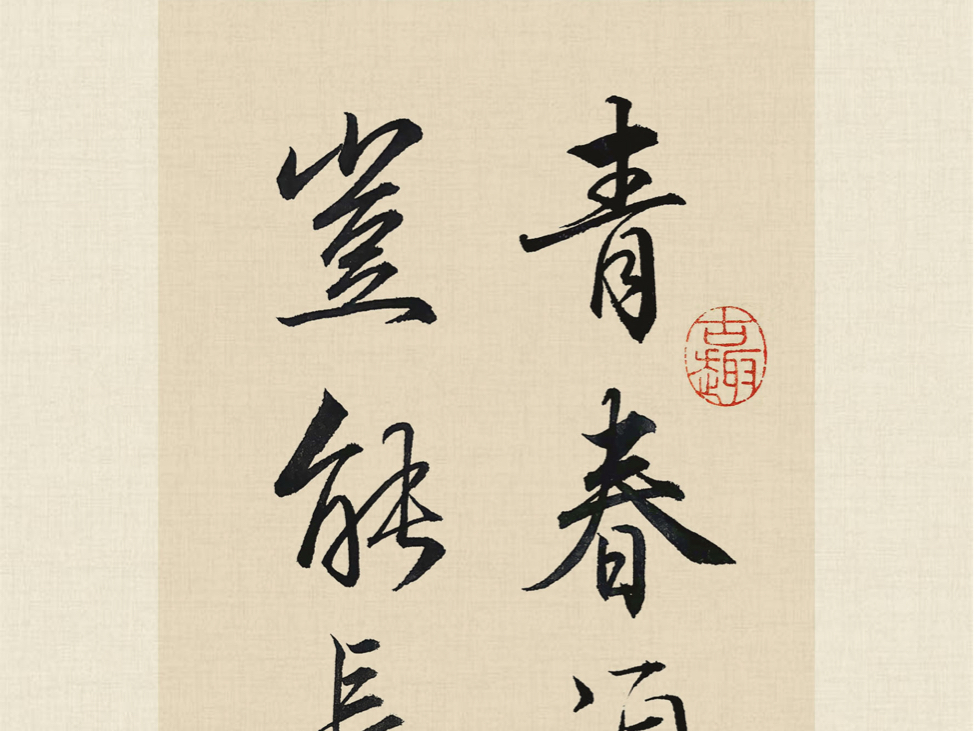 古趣
青春須
豈能長